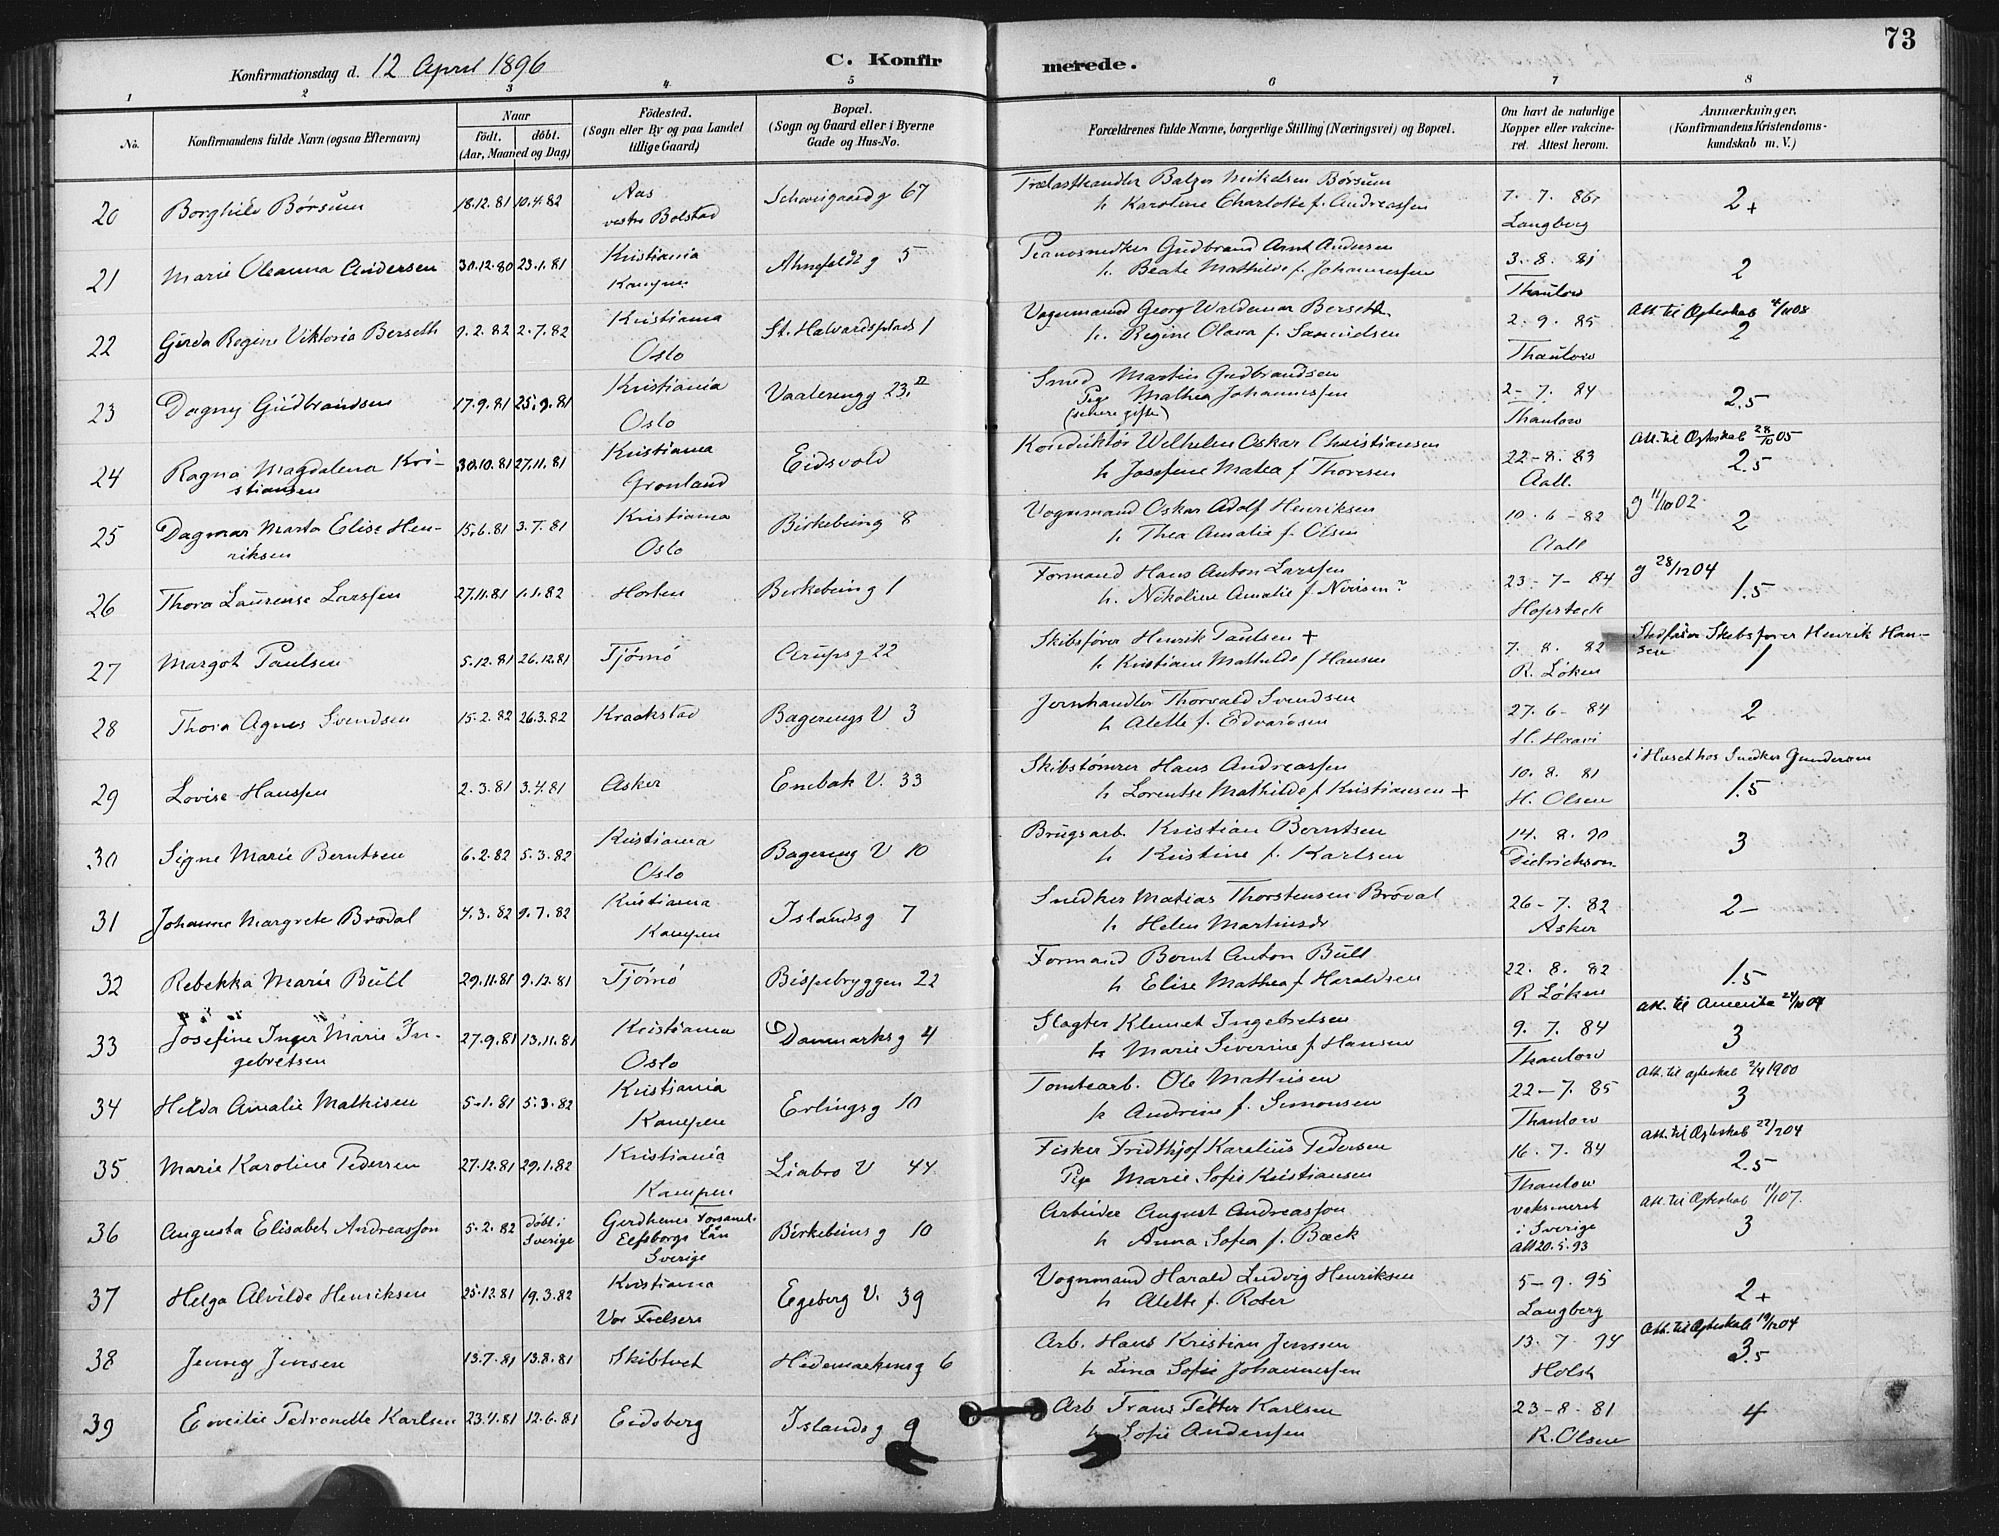 73
Konfirmationsdag d. 12 April 1896
C. Konfirmerede.
1 2 3 4 5 6 7 8
No. Konfirmandens fulde Navn (ogsaa Efternavn) Naar födt. döbt. (Aar, Maaned og Dag) Födested. (Sogn eller By og paa Landet tillige Gaard) Bopæl. (Sogn og Gaard eller i Byerne Gade og Hus-No. Forældrenes fulde Navne, borgerlige Stilling (Næringsvei) og Bopæl. Om havt de naturlige Kopper eller vakcineret. Attest herom. Anmærkninger. (Konfirmandens Kristendomskundskab m. V.)
20 Borghild Börsum 18.12.81 10.4.82 Aas vestre Bolstad Schweigaard g 67 Trælasthandler Balzer Mikelsen Börsum
h Karoline Charlotte f. Andreassen 7. 7. 86 Langberg 2+
21 Marie Oleanna Andersen 30.12.80 23.1.81 Kristiania Kampen Ahnefeldt g 5 Pianosnedker Gudbrand Arnt Andersen
h. Beate Mathilde f. Johannessen 3. 8. 81 Thaulow 2
22 Gerda Regine Viktoria Berseth 9.2.82 2.7.82 Kristiania Oslo St. Halvardsplads 1 Vognmand Georg Waldemar Berseth
h. Regine Olava f. Samuelsen 2. 9. 85 Thaulow Att til Ægteskab 4/10 08 2
23 Dagny Gudbrandsen 17.9.81 25.9.81 Kristiania Oslo Vaalereng g 23. II Smed Martin Gudbrandsen
Pige Mathea Johannessen
(senere gifte) 2-7. 84 Thaulow 2.5
24 Ragna Magdalena Kristiansen 30.10.81 27.11.81 Kristiania Grønland Eidsvold Konduktør Wilhelm Oskar Christiansen
h Josefine Matea f Thoresen 22-8. 83 Aall. Att. til Ægteskab 28/10 05 2.5
25 Dagmar Marta Elise Henriksen 15.6.81 3.7.81 Kristiania Oslo Birkebeing 8 Vognmand Oskar Adolf Henriksen
h. Thea Amalie f. Olsen 10. 6-82 Aall g 11/10 02 2
26 Thora Laurense Larssen 27.11.81 1.1.82 Horten Birkebeing 1 Formand Hans Anton Larssen
h. Nikoline Amalie f. 23-7-84 Hopstock g 28/12 04 1.5
27 Margot Paulsen 5.12.81 26.12.81 Tjömö Arups g 22 Skibsfører Henrik Paulsen +
h Kristiane Mathilde f Hansen 7. 8. 82 R. Löken Stedfaer Skibsfører Henrik Hansen 1
28 Thora Agnes Svendsen 15.2.82 26.3.82 Kraakstad Bagerengs V 3 Jernhandler Thorvald Svendsen
h Alette f. Edvardsen 27. 6-84 H. 2
29 Lovise Hanssen 2.3.81 3.4.81 Asker Enebak V. 33 Skibstömrer Hans Andreassen
h Lorentse Mathilde f Kristiansen + 10. 8. 81 H. Olsen i Huset hos Snedker Gundersen 1.5
30 Signe Marie Berntsen 6.2.82 5.3.82 Kristiania Oslo Bagereng V 10 Brugsarb. Kristian Berntsen
h Kristine f. Karlsen 14. 8. 90 Dietrichson 3
31 Johanne Margrete Brödal 4.3.82 9.7.82 Kristiania Kampen Islands g 7 Snedker Matias Thorstensen Brödal
h Helen Martinsdr 26-7. 82 Asker 2-
32 Rebekka Marie Bull 29.11.81 9.12.81 Tjömö Bispebryggen 22 Formand Bernt Anton Bull
h Elise Mathea f Haraldsen 22. 8. 82 R Löken 1.5
33 Josefine Inger Marie Ingebretsen 27.9.81 13.11.81 Kristiania Oslo Danmarks g 4 Slagter Klemet Ingebretsen
h Marie Siverine f Hansen 9. 7. 84 Thaulow Att. til Amerika 24/10 04 3
34 Helda Amalie Mathisen 5.1.81 5.3.82 Kristiania Kampen Erlings g 10 Tomtearb. Ole Mathisen
h Andrine f. Simonsen 22-7. 85 Thaulow Att. til ægteskab 2/4 1900 3
35 Marie Karoline Pedersen 27.12.81 29.1.82 Kristiania Kampen Liabro V 44 Fisker Fridthjof Karelius Pedersen
Pige Marie Sofie Kristiansen 16. 7. 84 Thaulow Att. til Ægteskab 22/2 04 2.5
36 Augusta Elisabet Andreasson 5.2.82 döbt i Sverige Gerdhems Forsaml. Elfsborgs Län Sverige Birkebeins g 10 Arbeider August Andreasson
h Anna Sofia f. Bäck vaksineret i Sverige Att 20.5.93 Att. til Ægteskab 11/1 07. 3
37 Helga Alvilde Henriksen 25.12.81 19.3.82 Kristiania Vor Frelsers Egeberg V. 39 Vognmand Harald Ludvig Henriksen
h Alette f. Roter 5-9. 95 Langberg 2+
38 Jenny Jensen 13.7.81 13.8.81 Skibtvet Hedemarkens g 6 Arb. Hans Kristian Jenssen
h Lina Sofie Johannessen 13. 7 94 Holst Att. til Ægteskab 19/12 04 3.5
39 Emeilie Petronelle Karlsen 23.4.81 12.6.81 Eidsberg Islands g 9 Arb Frans Petter Karlsen
h Sofie Andersen 23-8-81 R. Olsen 4